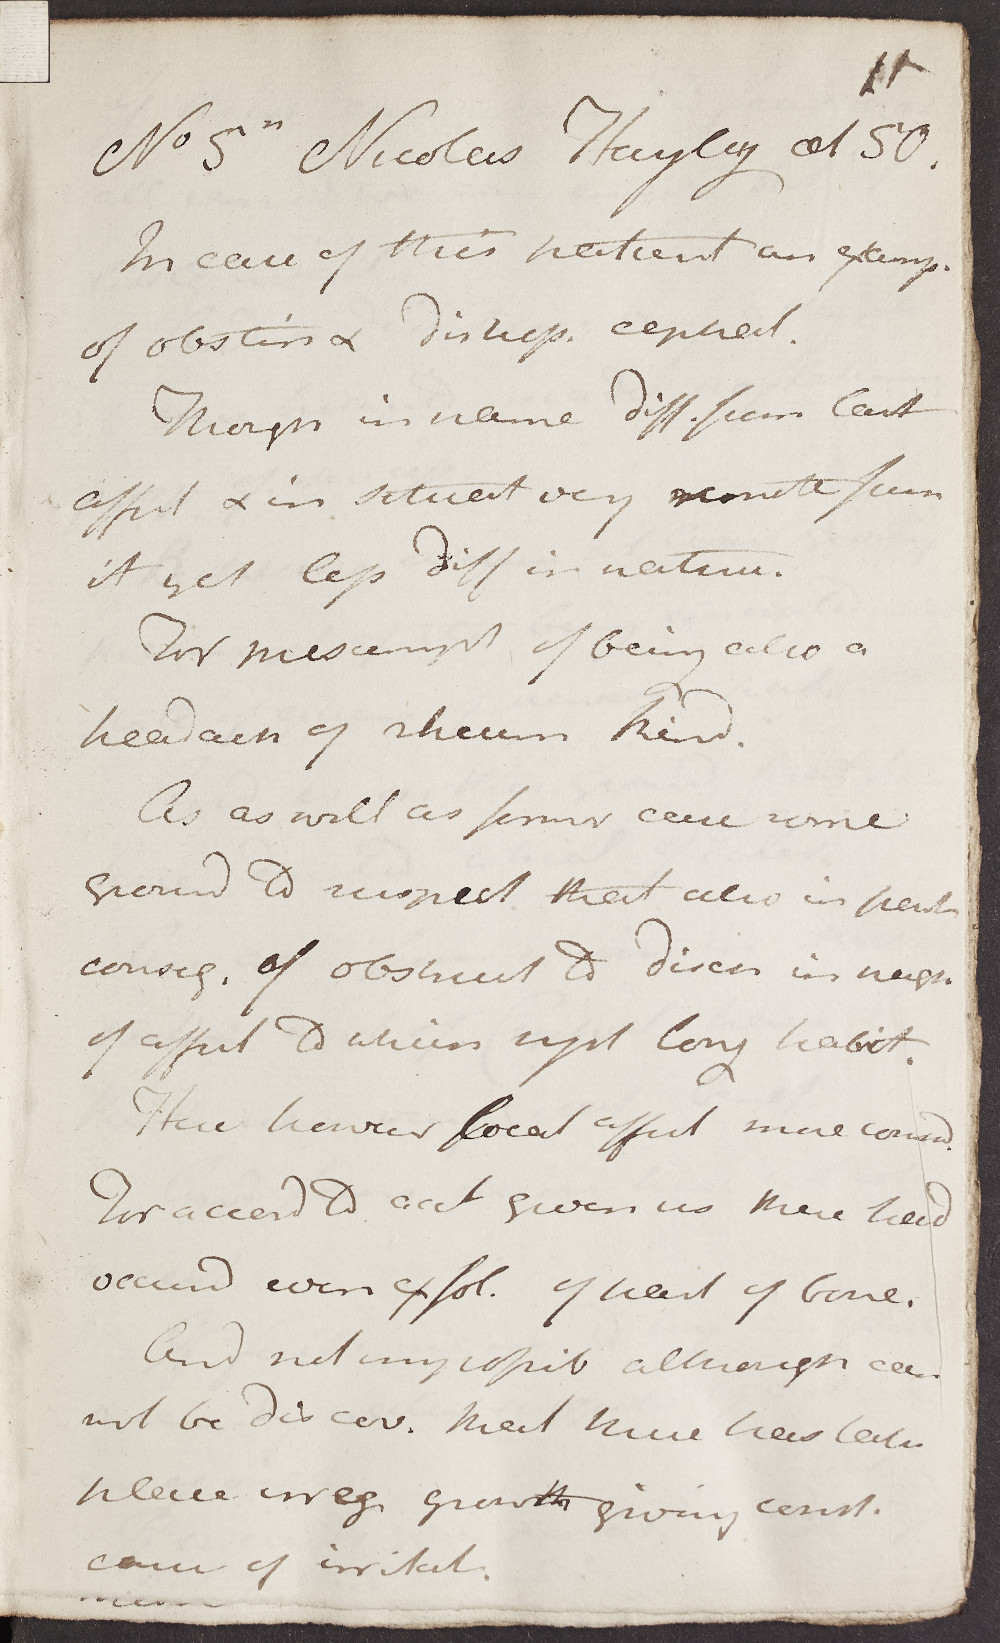 11
No 5n Nicolas Hayley æt 50.
In case of this patient an examp.
of obstin & distress. cephal.
Though in name diff. from last
affect & in situat very remote from
it yet less diff in nature.
For presumpt of being also a
headach of rheum kind.
As as well as former case some
ground to suspect that also in part
conseq. of obstruct to disch in neigh
of affect to which syst long habit.
Here however local affect more consid.
For accord to acct given us there had
occurd even exfol. of part of bone.
And not impossib although can
not be discov. that there has taken
place irreg growth giving const.
cause of irritat.